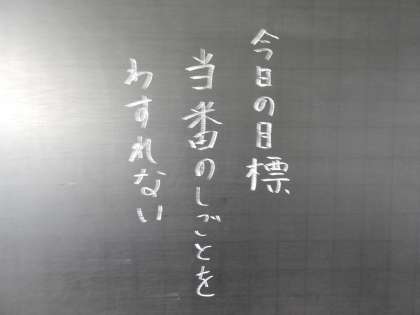 今日の目標
当番のしごとを
わすれない